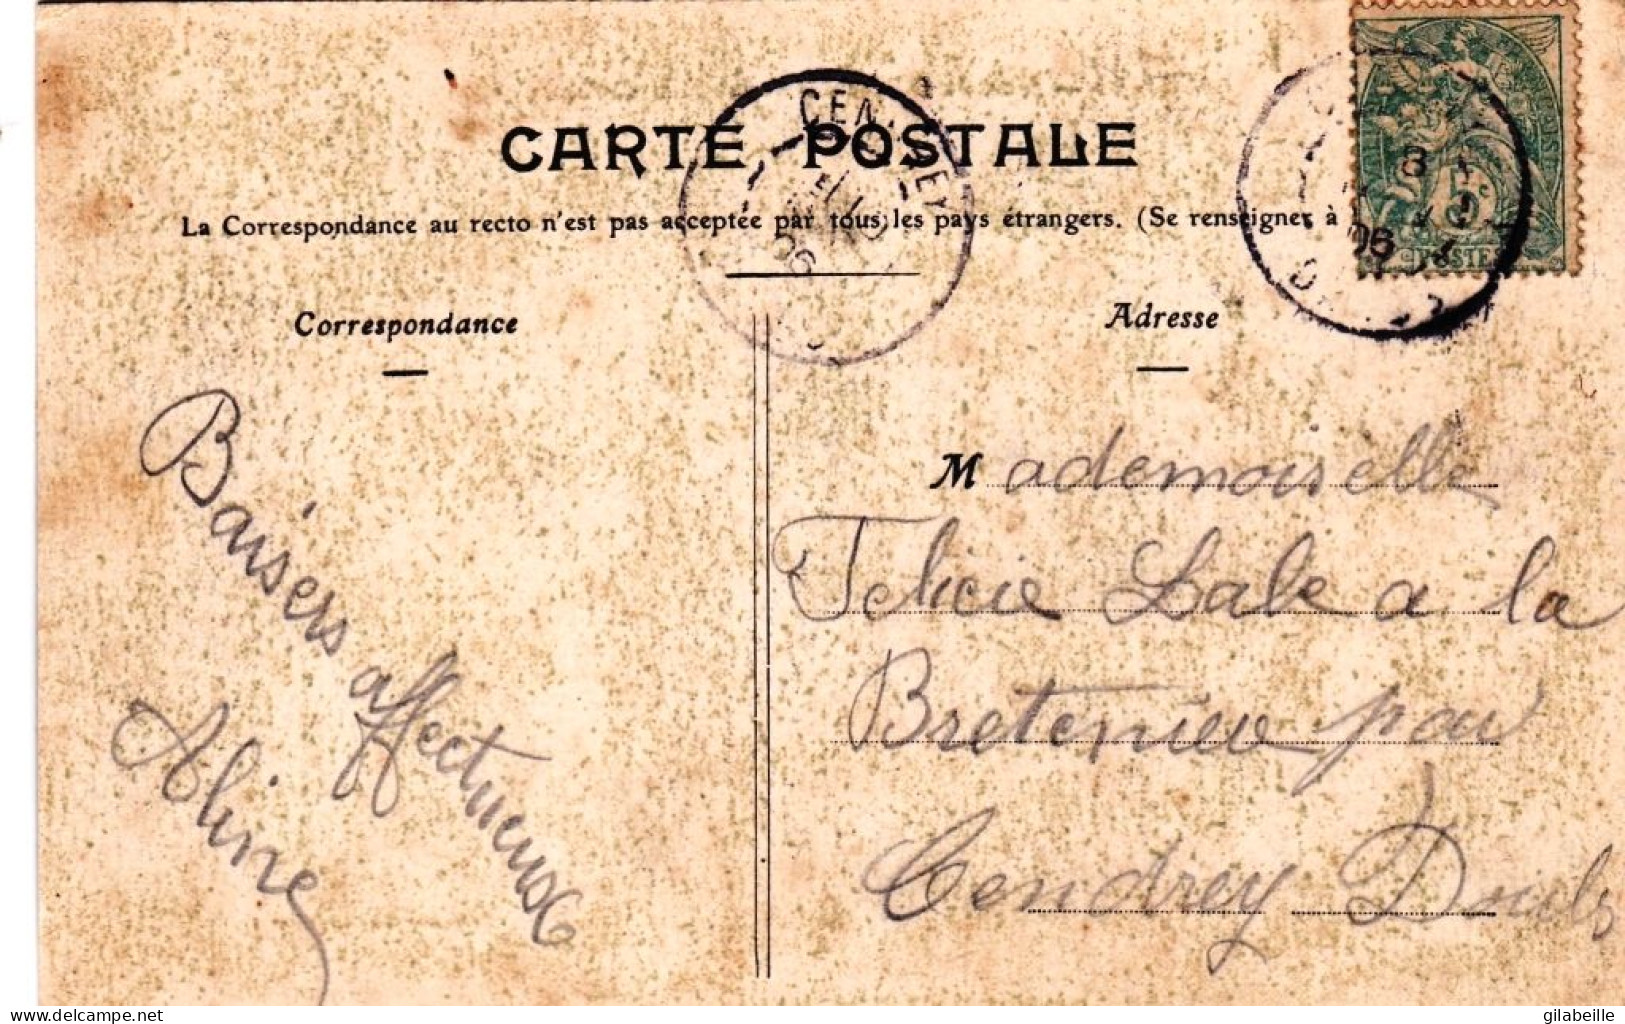 CARTE POSTALE
La Correspondance au recto n'est pas acceptée par tous les pays étrangers. (Se renseigner à
Correspondance
Adresse
CENDREY
06
06
5c
POSTES
Baisers affectueux
Aline
Mademoiselle
Felicie Lale a la
Bretenière par
Cendrey Doubs
www.delcampe.net
gilabeille